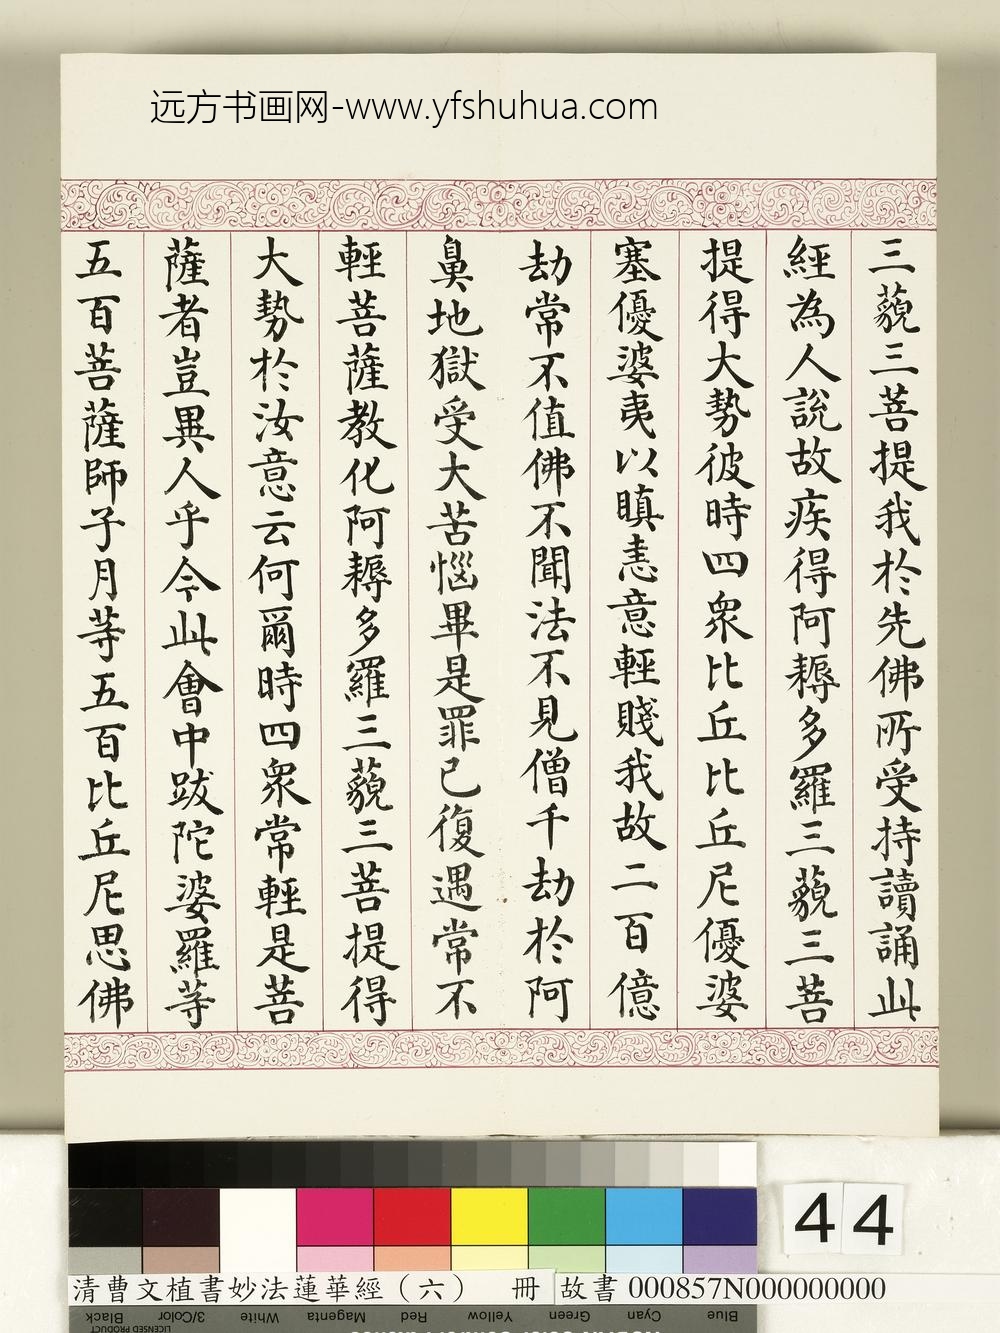 远方书画网-www.yfshuhua.com
三藐三菩提我於先佛所受持讀誦此
經為人說故疾得阿耨多羅三藐三菩
提得大勢彼時四眾比丘比丘尼優婆
塞優婆夷以瞋恚意輕賤我故二百億
劫常不值佛不聞法不見僧千劫於阿
鼻地獄受大苦惱畢是罪已復遇常不
輕菩薩教化阿耨多羅三藐三菩提得
大勢於汝意云何爾時四眾常輕是菩
薩者豈異人乎今此會中跋陀婆羅等
五百菩薩師子月等五百比丘尼思佛
44
清曹文植書妙法蓮華經（六） 冊 故書 000857N000000000
Black 3/Color White Magenta Red Yellow Green Cyan Blue
LICENSED PRODUCT